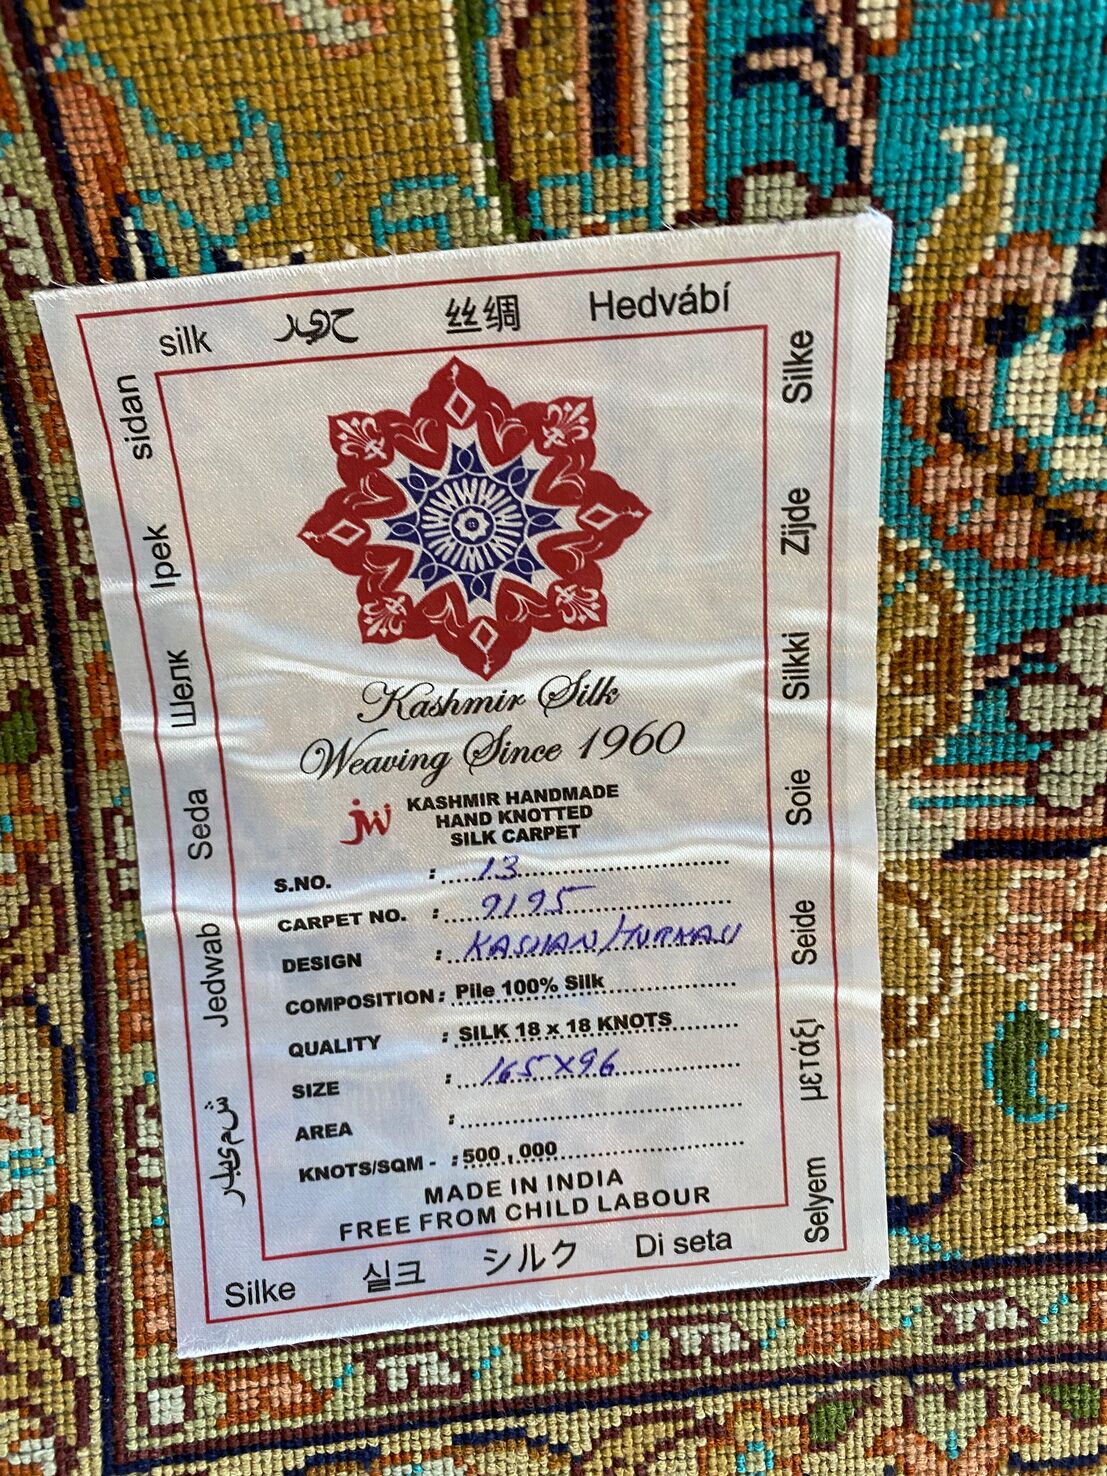 silk حرير 丝绸 Hedvábí
sidan
Ipek
Шелк
Seda
Jedwab
ش‌م‌ی‌ل‌ر
Silke
Zijde
Silkki
Soie
Seide
μετάξι
Selyem
Kashmir Silk
Weaving Since 1960
jw KASHMIR HANDMADE
HAND KNOTTED
SILK CARPET
S.NO. : 13
CARPET NO. : 9195
DESIGN : KASHAN/TURMASI
COMPOSITION : Pile 100% Silk
QUALITY : SILK 18 x 18 KNOTS
SIZE : 165X96
AREA :
KNOTS/SQM - : 500,000
MADE IN INDIA
FREE FROM CHILD LABOUR
Silke 실크 シルク Di seta